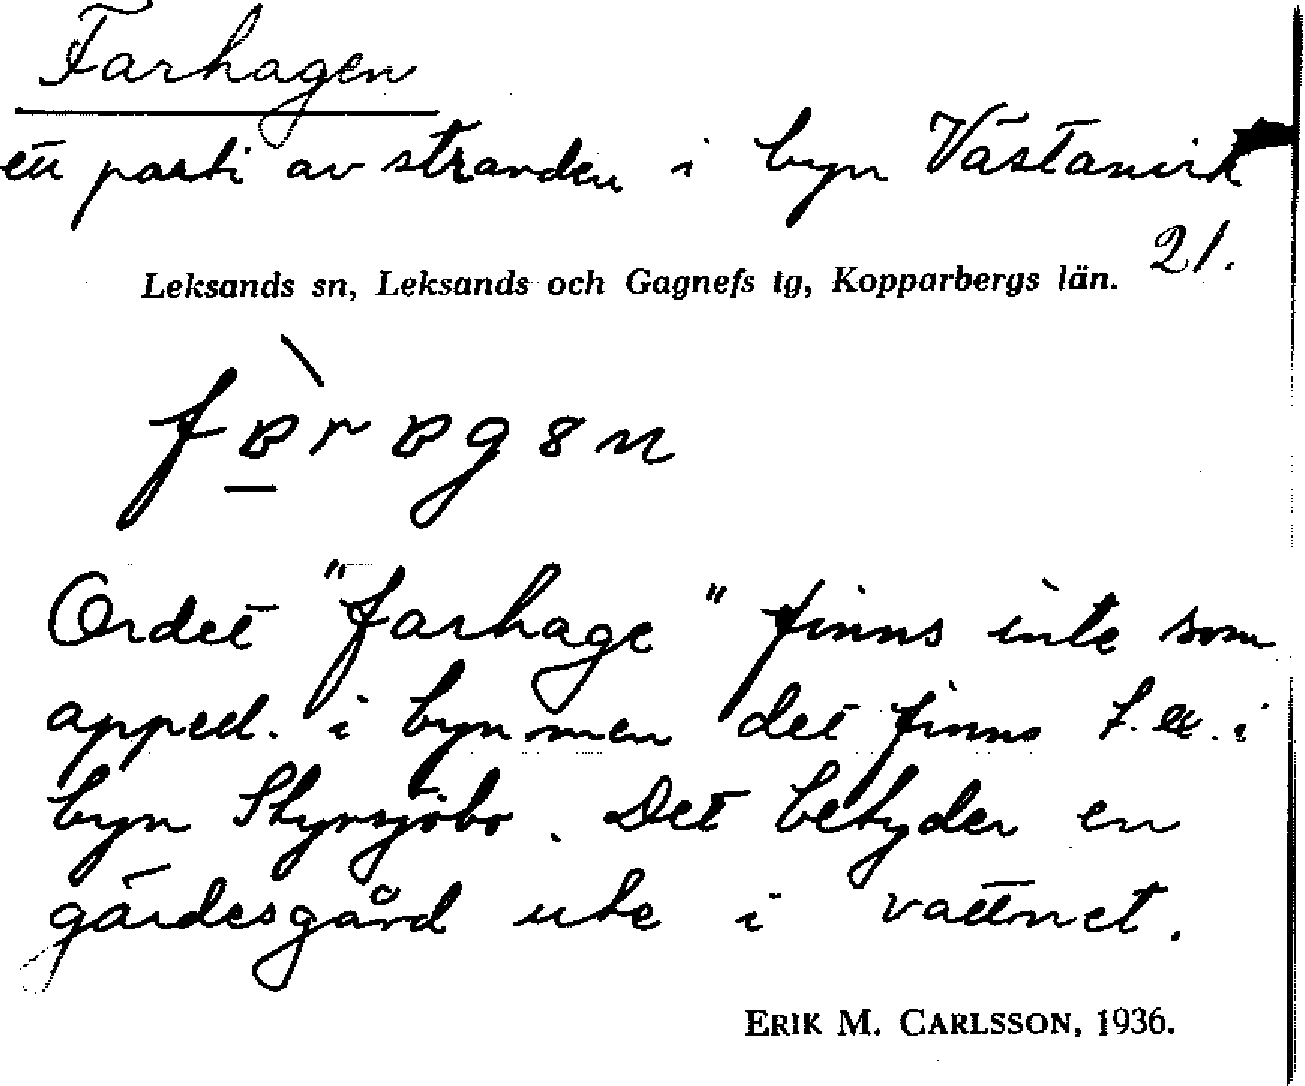 Farhagen
ett parti av stranden i byn Västanvik
21.
Leksands sn, Leksands och Gagnefs tg, Kopparbergs län.
Ordet "farhage" finns inte som
apped. i byn men det finns t.ex. i
byn Styrsjöbo. Det betyder en
gärdesgård ute i vattnet.
ERIK M. CARLSSON, 1936.